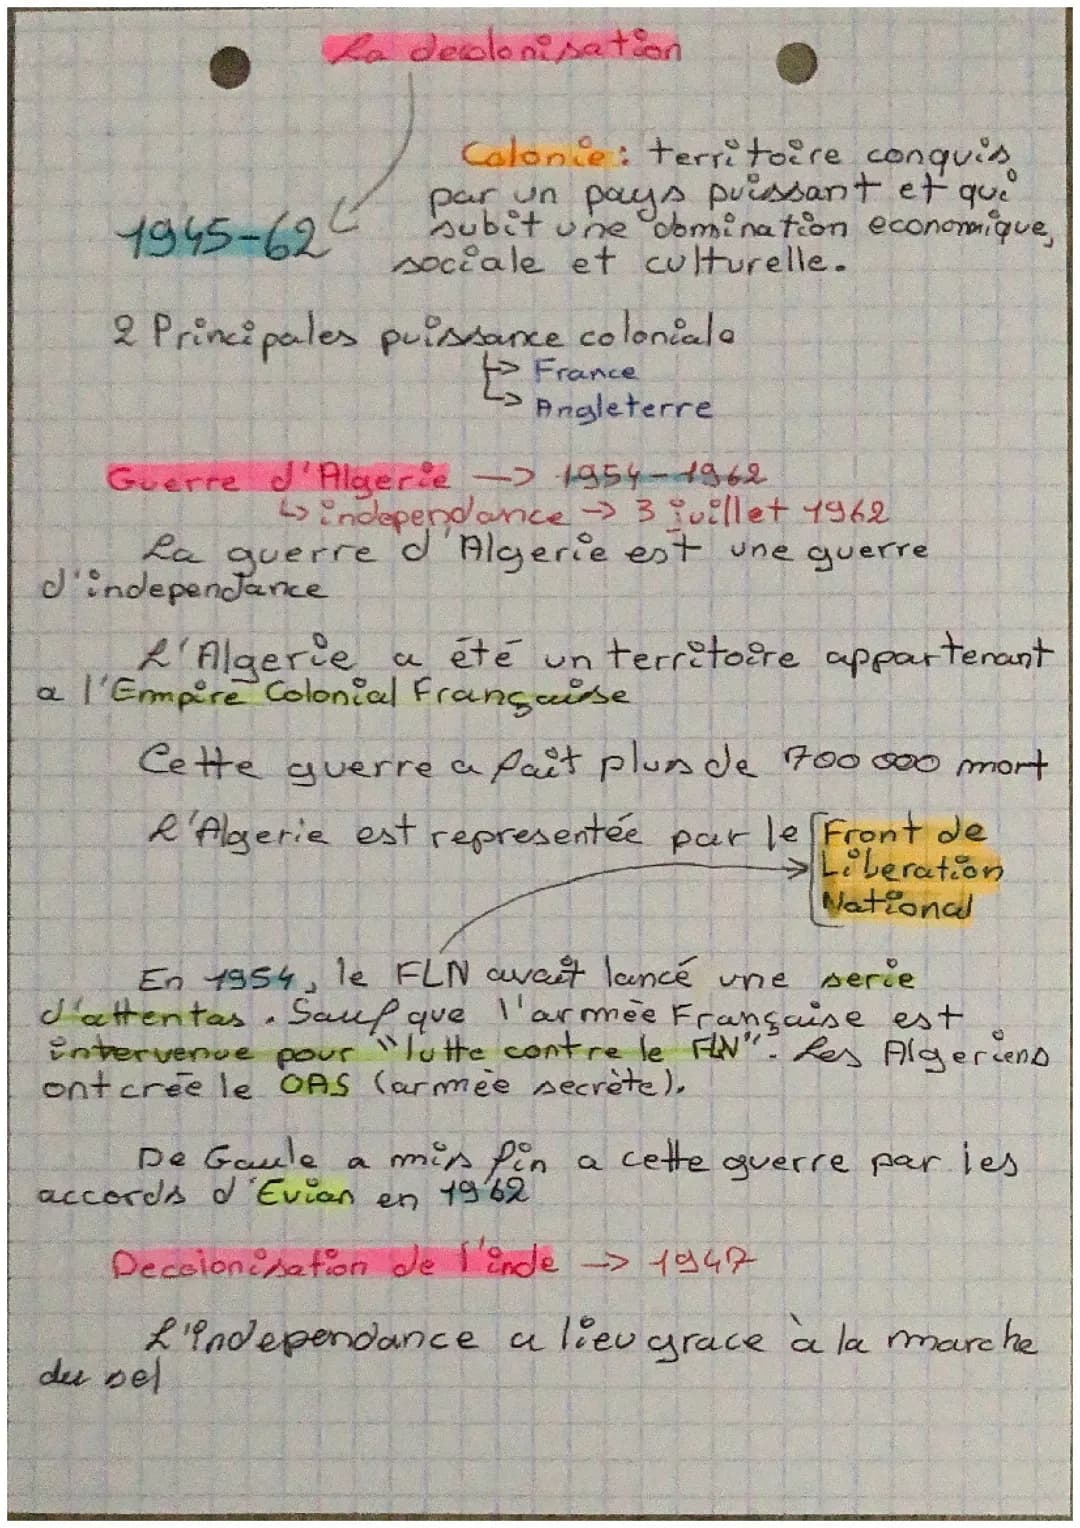 La decolonisation
Colonie : territoire conquis
par un pays puissant et qui
1945-62
subit une domination economique,
sociale et culturelle.
2 Principales puissance coloniale
↳ France
↳ Angleterre
Guerre d'Algerie → 1954-1962
↳ independance → 3 juillet 1962
La guerre d'Algerie est une guerre
d'independance
L'Algerie a été un territoire appartenant
a l'Empire Colonial Française
Cette guerre a fait plus de 700 000 mort
L'Algerie est representée par le Front de
Liberation
National
En 1954, le FLN avait lancé une serie
d'attentas. Sauf que l'armèe Française est
intervenue pour "lutte contre le FLN". Les Algeriens
ont crée le OAS (armèe secrète).
De Gaule a mis fin a cette guerre par les
accords d'Evian en 1962
Decolonisation de l'inde → 1947
L'independance a lieu grace à la marche
du sel